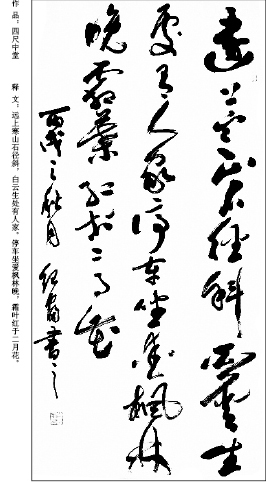 遠上寒山石径斜白雲生
处有人家停车坐爱枫林
晚霜葉红于二月花
丙戌之秋月 书之
作 品：四尺中堂
释 文：远上寒山石径斜，白云生处有人家。停车坐爱枫林晚，霜叶红于二月花。